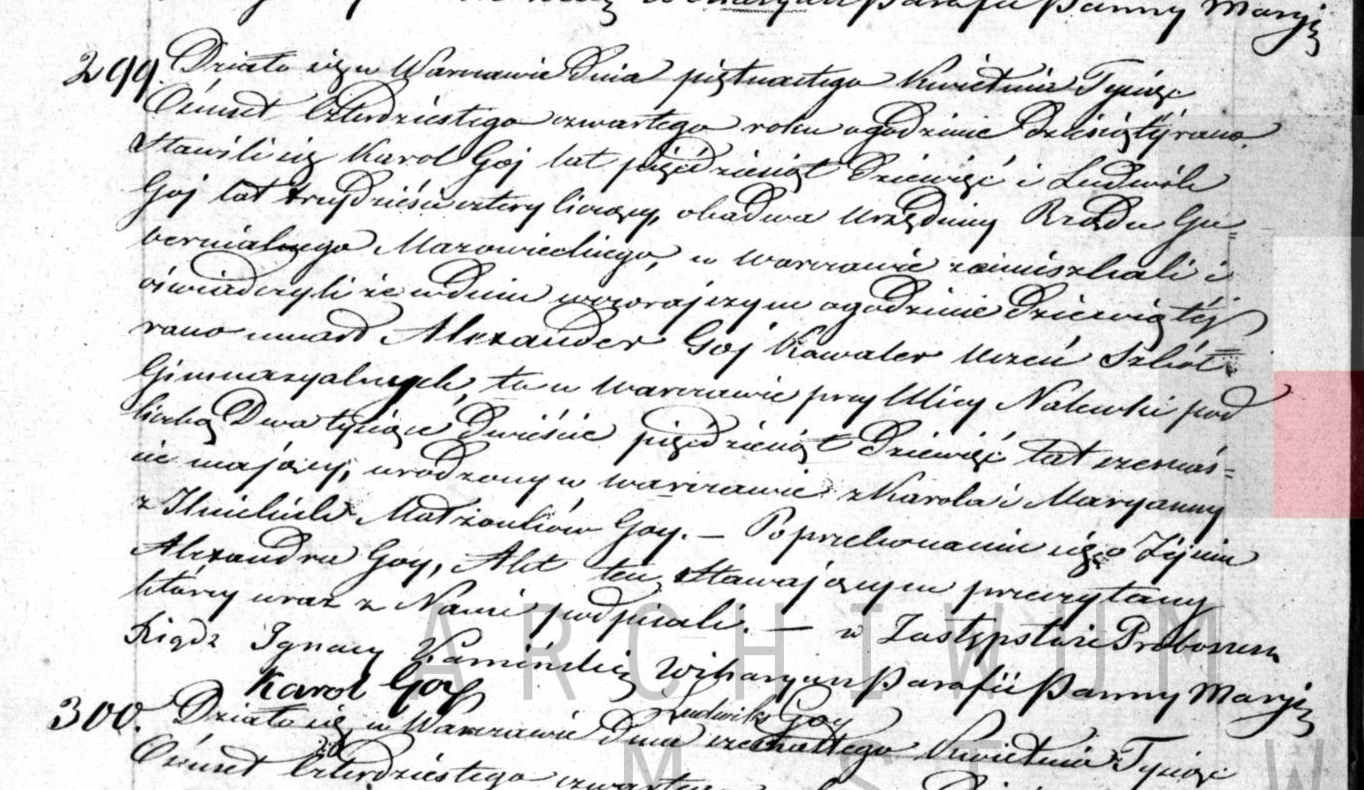 Wikaryusz Parafii Panny Maryi
299. Działo się w Warszawie Dnia piętnastego Kwietnia Tysiąc
Ośmset Czterdziestego czwartego roku o godzinie dziesiątéj rano.
Stawili się Karol Goj lat pięćdziesiąt dziewięć i Ludwik
Goj lat trzydzieści cztery liczący, obadwa Urzędnicy Rządu Gu=
bernialnego Mazowieckiego, w Warszawie zamieszkali i
oświadczyli że w dniu wczorajszym o godzinie dziewiątéj
rano umarł Alexander Goj Kawaler Uczeń Szkół
Gimnazyalnych, tu w Warszawie przy Ulicy Nalewki pod
liczbą Dwa tysiące dwieście pięćdziesiąt dziewięć lat szesnaś=
cie mający, urodzony w Warszawie z Karola i Maryanny
z Małżonków Goy. — Po przekonaniu się o Zejściu
Alexandra Goy, Akt ten stawającym przeczytany
który wraz z Nami podpisali. — w Zastępstwie Proboszcza
Xiądz Ignacy Kamiński Wikaryusz Parafii Panny Maryi
Karol Goy
Ludwik Goy
300. Działo się w Warszawie Dnia szesnastego Kwietnia Tysiąc
Ośmset Czterdziestego czwartego
ARCHIWUM
M ST W